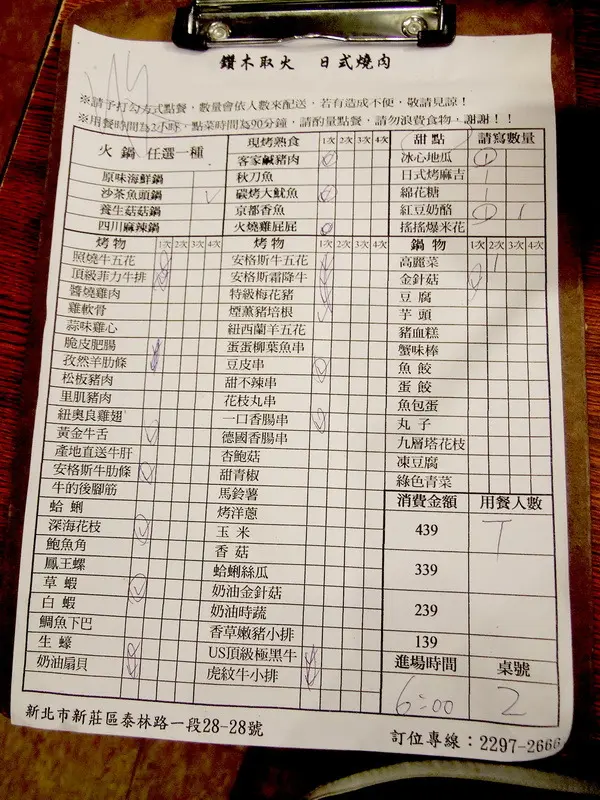 鑽木取火 日式燒肉
※請予打勾方式點餐，數量會依人數來配送，若有造成不便，敬請見諒！
※用餐時間為2小時，點菜時間為90分鐘，請酌量點餐，請勿浪費食物，謝謝！！
火鍋 任選一種
原味海鮮鍋
沙茶魚頭鍋
養生菇菇鍋
四川麻辣鍋
現烤熟食 1次 2次 3次 4次
客家鹹豬肉
秋刀魚
碳烤大魷魚
京都香魚
火燒雞屁屁
甜點 請寫數量
冰心地瓜 1
日式烤麻吉 1
綿花糖 1
紅豆奶酪 1 1
搖搖爆米花
烤物 1次 2次 3次 4次
照燒牛五花
頂級菲力牛排
醬燒雞肉
雞軟骨
蒜味雞心
脆皮肥腸
孜然羊肋條
松板豬肉
里肌豬肉
紐奧良雞翅
黃金牛舌
產地直送牛肝
安格斯牛肋條
牛的後腳筋
蛤蜊
深海花枝
鮑魚角
鳳王螺
草蝦
白蝦
鯛魚下巴
生蠔
奶油扇貝
烤物 1次 2次 3次 4次
安格斯牛五花
安格斯霜降牛
特級梅花豬
煙薰豬培根
紐西蘭羊五花
蛋蛋柳葉魚串
豆皮串
甜不辣串
花枝丸串
一口香腸串
德國香腸串
杏鮑菇
甜青椒
馬鈴薯
烤洋蔥
玉米
香菇
蛤蜊絲瓜
奶油金針菇
奶油時蔬
香草嫩豬小排
US頂級極黑牛
虎紋牛小排
鍋物 1次 2次 3次 4次
高麗菜
金針菇
豆腐
芋頭
豬血糕
蟹味棒
魚餃
蛋餃
魚包蛋
丸子
九層塔花枝
凍豆腐
綠色青菜
消費金額 用餐人數
439
339
239
139
進場時間 桌號
6:00 2
新北市新莊區泰林路一段28-28號 訂位專線：2297-2666